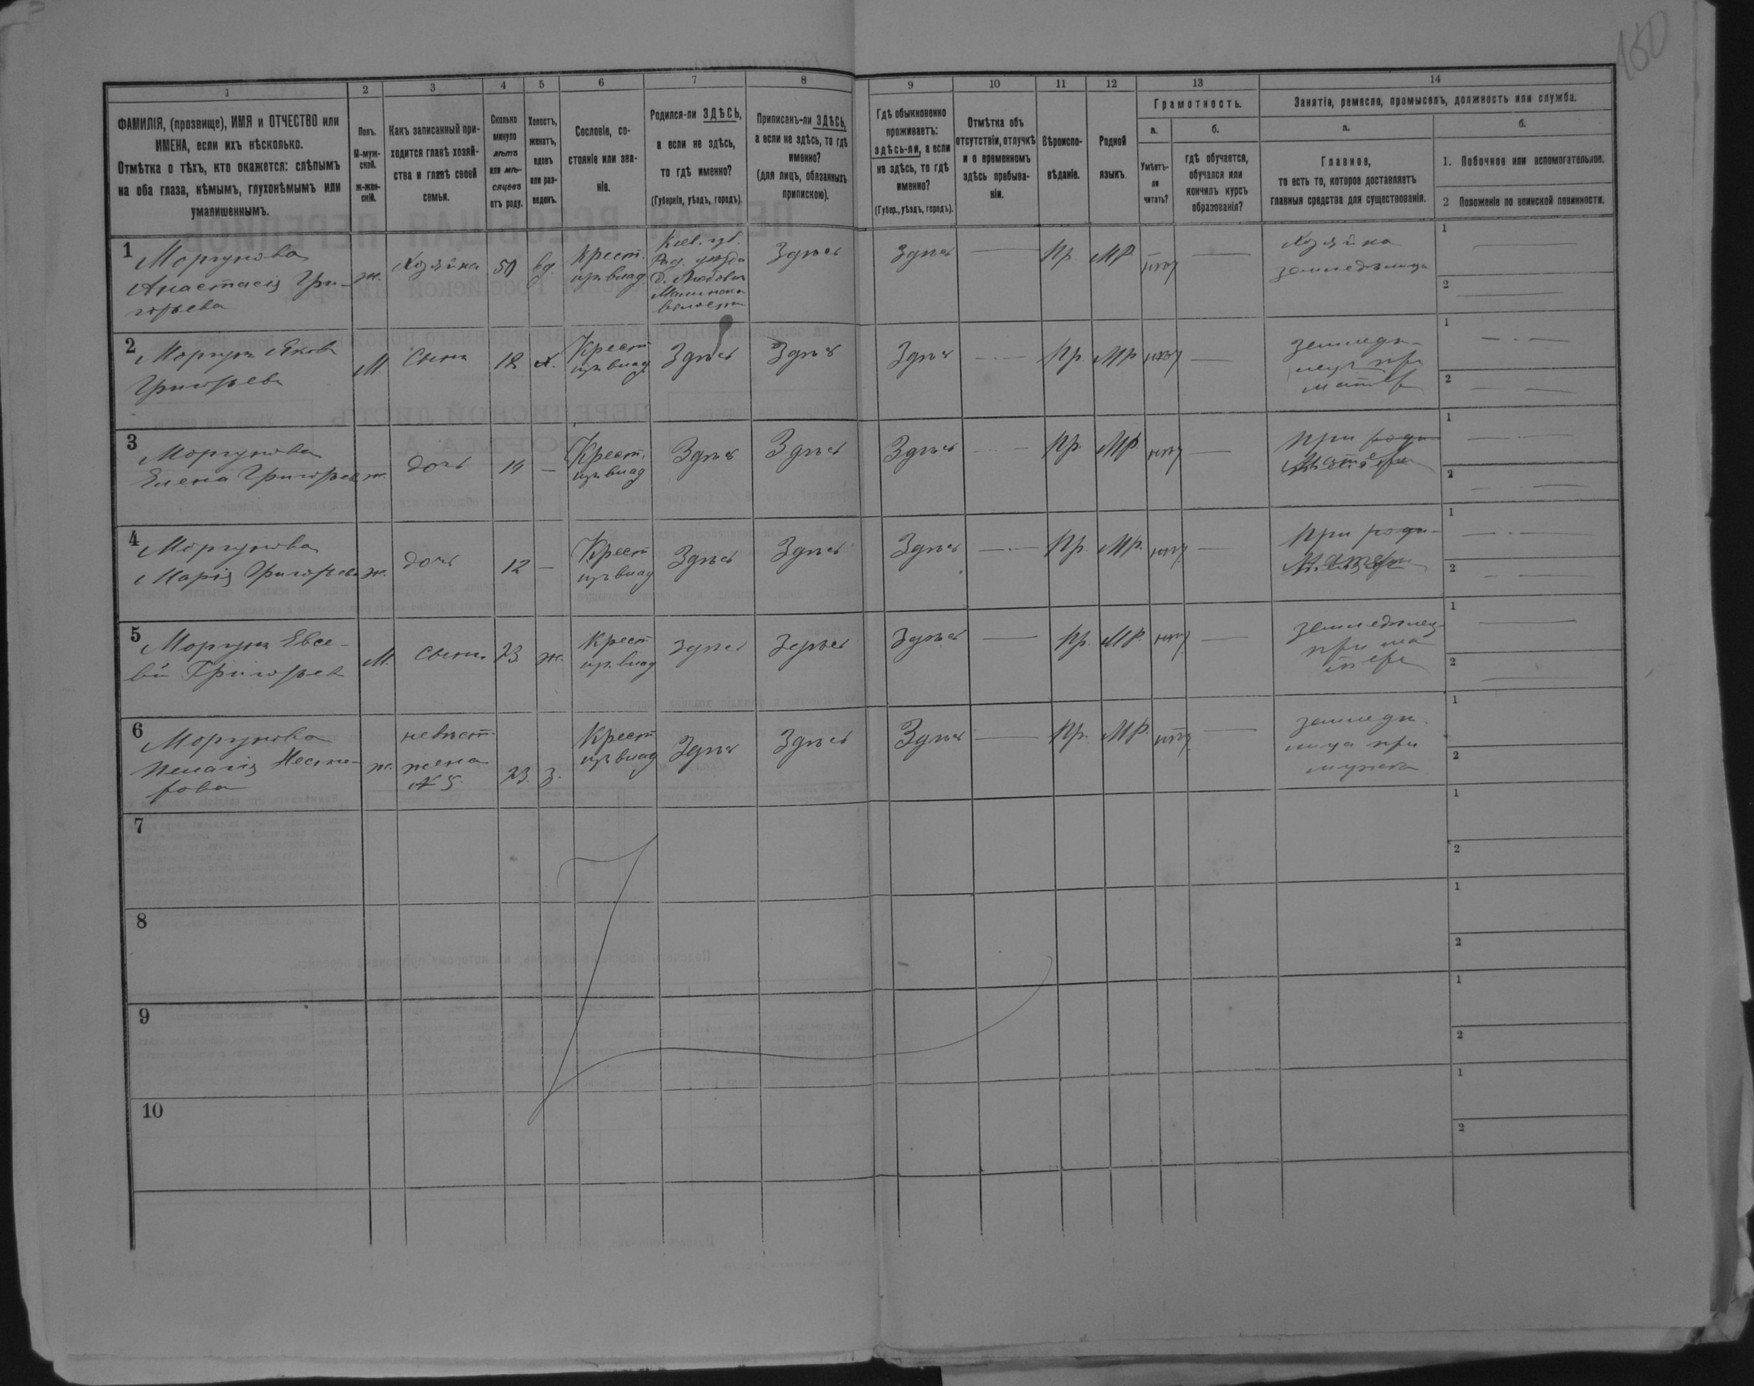 150
1
2
3
4
5
6
7
8
9
10
11
12
13
14
ФАМИЛІЯ, (прозвище), ИМЯ и ОТЧЕСТВО или
ИМЕНА, если ихъ нѣсколько.
Отмѣтка о тѣхъ, кто окажется: слѣпымъ
на оба глаза, нѣмымъ, глухонѣмымъ или
умалишеннымъ.
Полъ.
М-муж-
ской.
ж-жен-
скій.
Какъ записанный при-
ходится главѣ хозяй-
ства и главѣ своей
семьи.
Сколько
минуло
лѣтъ
или мѣ-
сяцевъ
отъ роду.
Холостъ,
женатъ,
вдовъ
или раз-
веденъ.
Сословіе, со-
стояніе или зва-
ніе.
Родился-ли ЗДѢСЬ,
а если не здѣсь,
то гдѣ именно?
(Губернія, уѣздъ, городъ).
Приписанъ-ли ЗДѢСЬ,
а если не здѣсь, то гдѣ
именно?
(для лицъ, обязанныхъ
припиской).
Гдѣ обыкновенно
проживаетъ:
здѣсь-ли, а если
не здѣсь, то гдѣ
именно?
(Губер., уѣздъ, городъ).
Отмѣтка объ
отсутствіи, отлучкѣ
и о временномъ
здѣсь пребыва-
ніи.
Вѣроиспо-
вѣданіе.
Родной
языкъ.
Грамотность.
а.
б.
Умѣетъ-
ли
читать?
гдѣ обучается,
обучался или
кончилъ курсъ
образованія?
Занятіе, ремесло, промыселъ, должность или служба.
а.
б.
Главное,
то есть то, которое доставляетъ
главныя средства для существованія.
1. Побочное или вспомогательное.
2 Положеніе по воинской повинности.
1 Моргунова
Анастасія Гри-
горьева
ж.
Хозяйка
50
вд.
Крест.
из влад
Кіев. губ.
Рад. уѣзда
волости
Здѣсь
Здѣсь
Пр
МР
нѣт
Хозяйка
земледѣлица
1
2
2 Моргун Яков
Григорьев
М
Сынъ
18
х.
Крест
из влад
Здѣсь
Здѣсь
Здѣсь
Пр.
МР
нѣт
земледѣ-
лец при
матер
1
2
3 Моргунова
Елена Григорьев
ж.
дочь
14
Крест.
из влад
Здѣсь
Здѣсь
Здѣсь
Пр.
МР.
нѣт
при роди
Матере
1
2
4 Моргунова
Марія Григорьева
ж.
дочь
12
Крест
из влад
Здѣсь
Здѣсь
Здѣсь
Пр.
МР.
нѣт
При роди-
Матере
1
2
5 Моргун Евсе-
вій Григорьев
М.
Сынъ.
23
ж.
Крест
из влад
Здѣсь
Здѣсь
Здѣсь
Пр.
МР.
нѣт
земледѣлец
при ма
тере
1
2
6 Моргунова
Пелагія Несте-
рова
ж.
невѣст.
жена
№ 5.
23.
з.
Крест
из влад
Здѣсь
Здѣсь
Здѣсь
Пр.
МР.
нѣт
земледѣ-
лица при
мужева
1
2
7
1
2
8
1
2
9
1
2
10
1
2